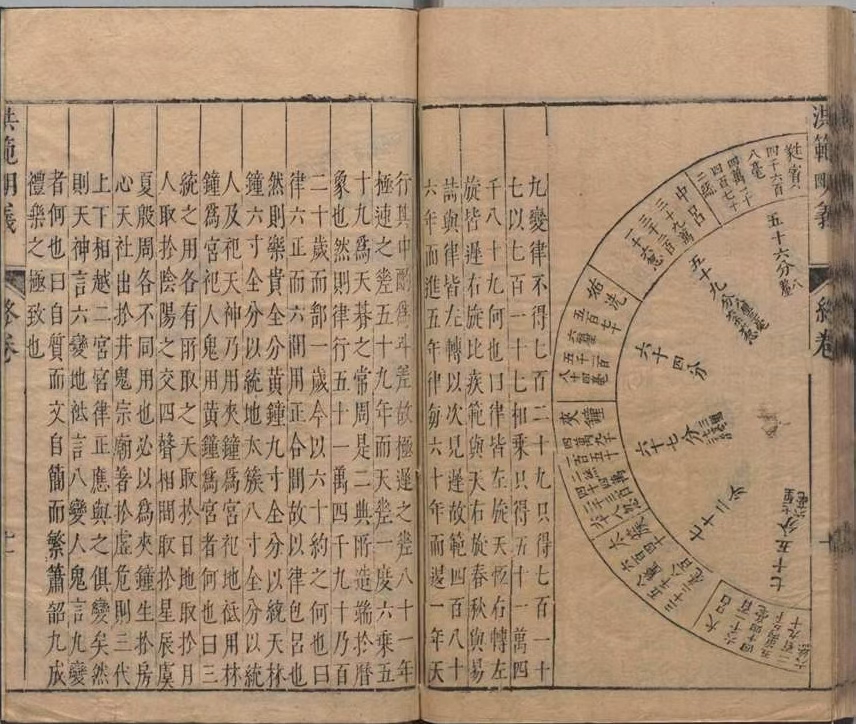 洪範明義
終卷
十
蕤賓
四千六百
八毫
中呂
姑洗
夾鐘
太簇
大呂
五十六分
五十九分
六十四分
六十七分
七十二分
七十五分
九變律不得七百二十九只得七百一十
七以七百一十七相乘只得五十一萬四
千八十九何也曰律皆左旋天恆右轉左
旋皆遲右旋比疾範與天右旋春秋與易
詩與律皆左轉以次見遲故範四百八十
六年而進五年律每六十年而退一年天
行其中酌為斗差故極遲之差八十一年
極速之差五十九年而天差一度六乘五
十九為天朞之常周是二典所造端於曆
象也然則律行五十一萬四千九十乃百
二十歲而部一歲今以六十約之何也曰
律六正而六間用正合間故以律包呂也
然則樂貴全分黃鐘九寸全分以統天林
鐘六寸全分以統地太簇八寸全分以統
人及祀天神乃用夾鐘為宮祀地祗用林
鐘為宮祀人鬼用黃鐘為宮者何也曰三
統之用各有所取之天取於日地取於月
人取於陰陽之交四聲相間取於星辰虞
夏殷周各不同用也必以為夾鐘生於房
心天社出於井鬼宗廟著於虛危則三代
上下相越二宮宮律正應與之俱變矣然
則天神言六變地祗言八變人鬼言九變
者何也曰自質而文自簡而繁簫韶九成
禮樂之極致也
洪範明義
終卷
十一